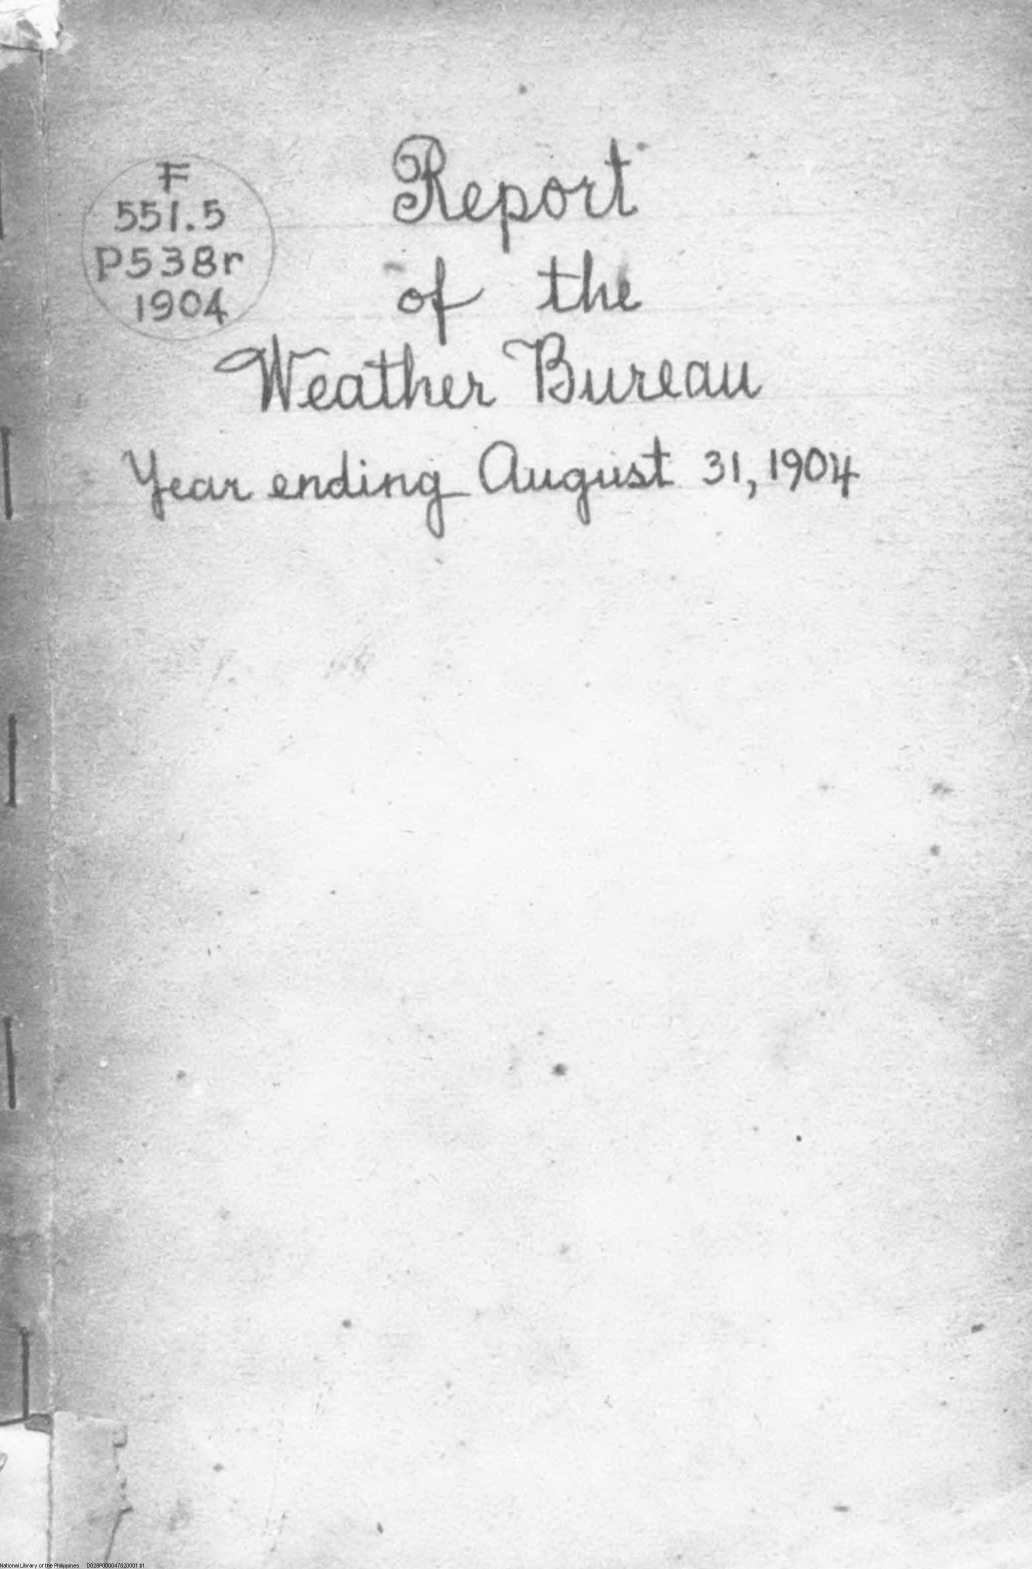 F
551.5
P538r
1904
Report
of the
Weather Bureau
Year ending August 31, 1904
National Library of the Philippines